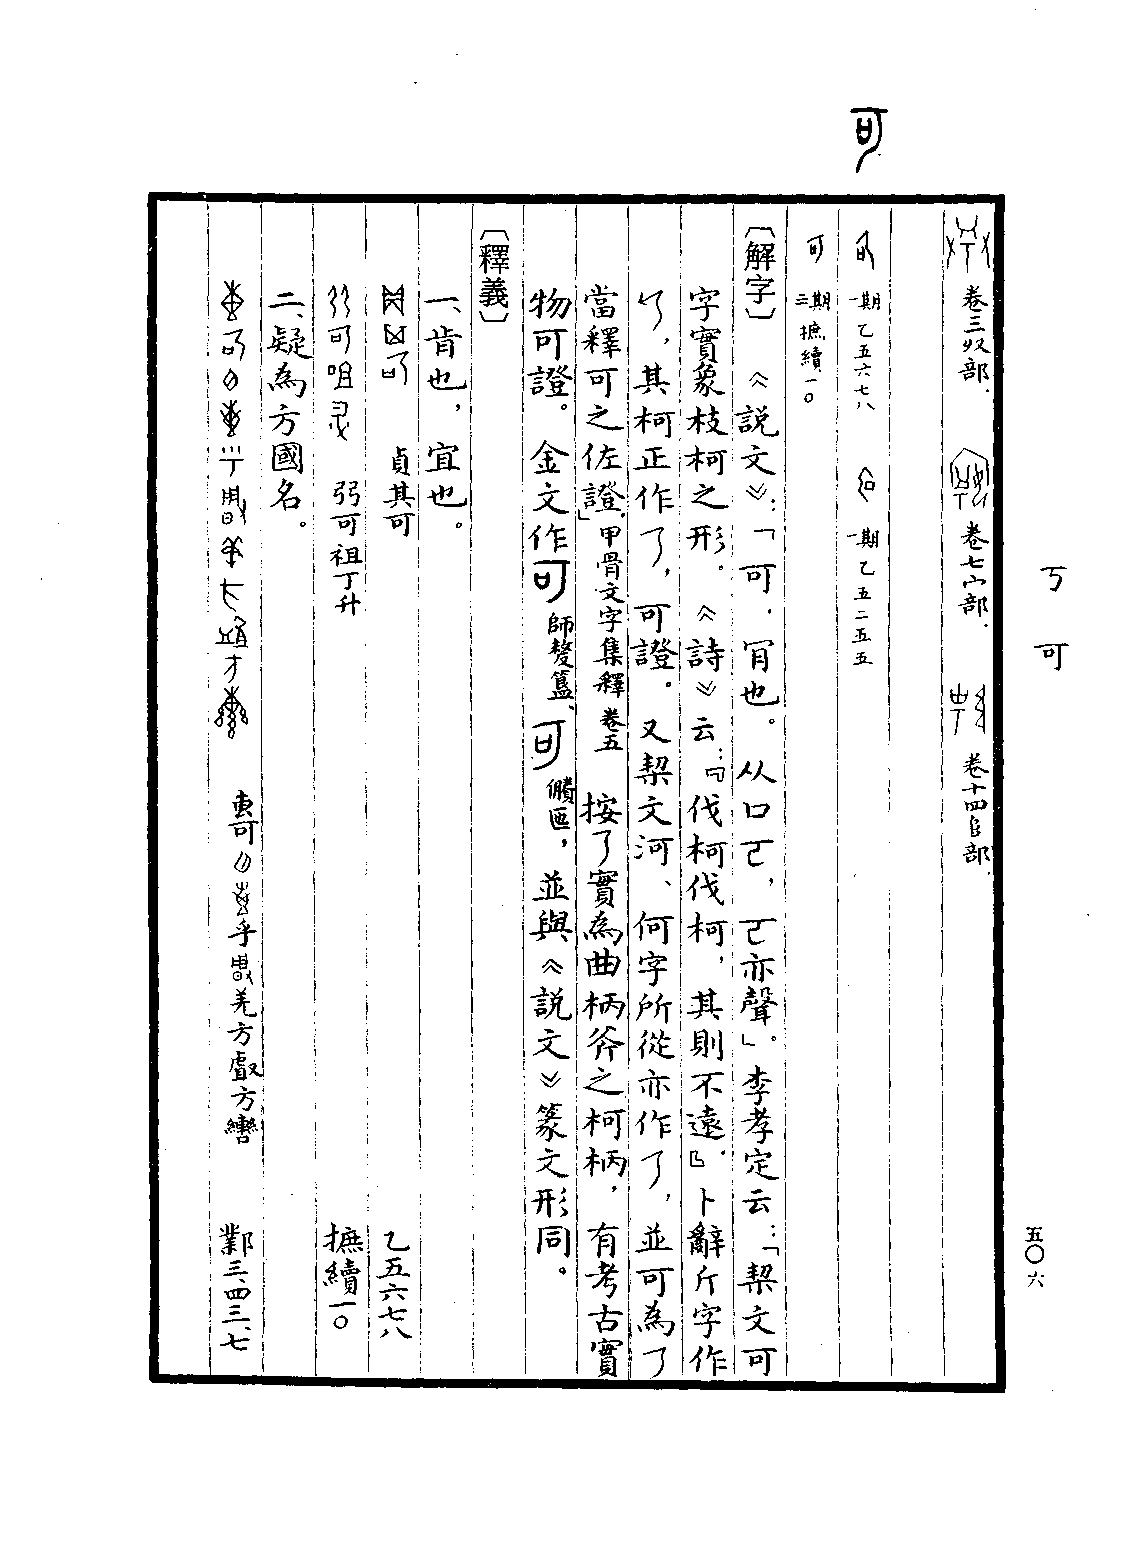 可
丂 可
五〇六
卷三𠬞部. 卷七宀部. 卷十四𨸏部.
一期 乙五六七八 一期 乙五二五五
三期 摭續一〇
〔解字〕 《說文》：「可，肎也。从口𠀀，𠀀亦聲」。李孝定云：「栔文可
字實象枝柯之形。《詩》云：『伐柯伐柯，其則不遠。』卜辭斤字作
，其柯正作，可證。又栔文河、何字所從亦作，並可為
當釋可之佐證。」甲骨文字集釋卷五 按實為曲柄斧之柯柄，有考古實
物可證。金文作可師嫠簋、可 匜，並與《說文》篆文形同。
〔釋義〕
一、肯也，宜也。
貞其可 乙五六七八
弜可祖丁升 摭續一〇
二、疑為方國名。
叀可 乎 羌方𠭯方 鄴三、四三、七